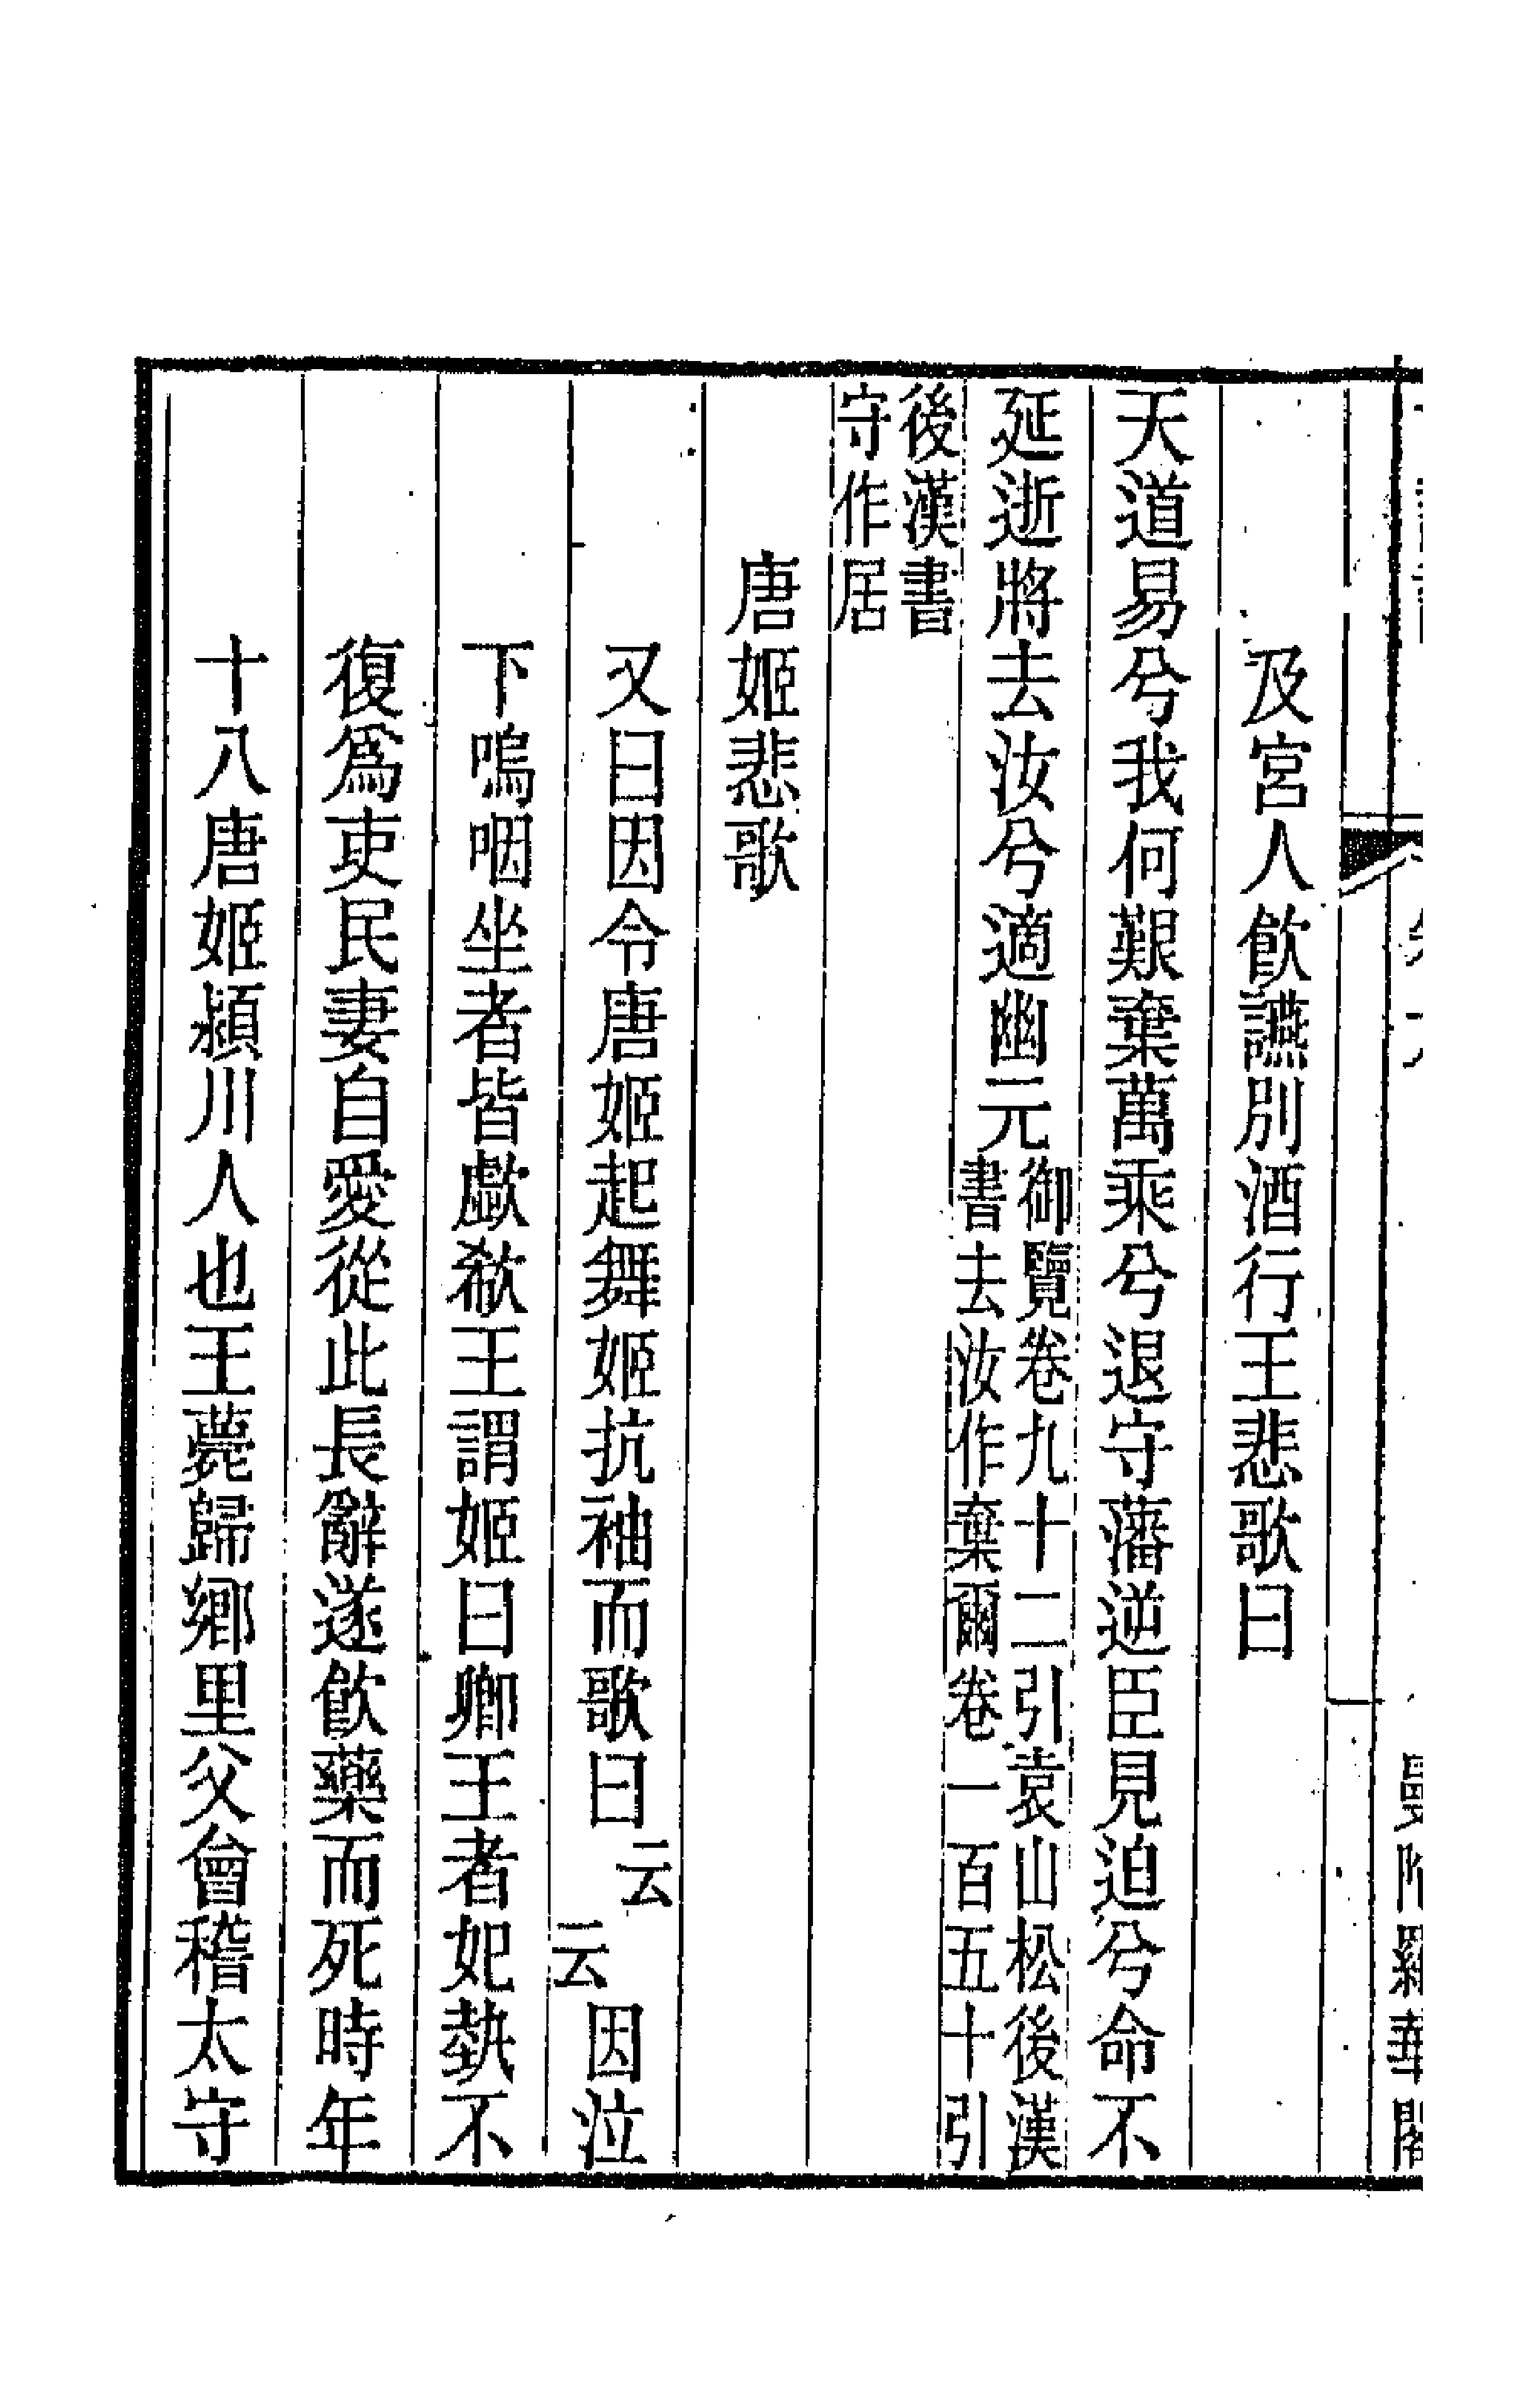 及宮人飮讌別酒行王悲歌曰
天道易兮我何艱棄萬乘兮退守藩逆臣見迫兮命不
延逝將去汝兮適幽元御覽卷九十二引袁山松後漢
書去汝作棄爾卷一百五十引
後漢書
守作居
唐姬悲歌
又曰因令唐姬起舞姬抗袖而歌曰云云因泣
下嗚咽坐者皆歔欷王謂姬曰卿王者妃埶不
復爲吏民妻自愛從此長辭遂飮藥而死時年
十八唐姬潁川人也王薨歸鄉里父會稽太守